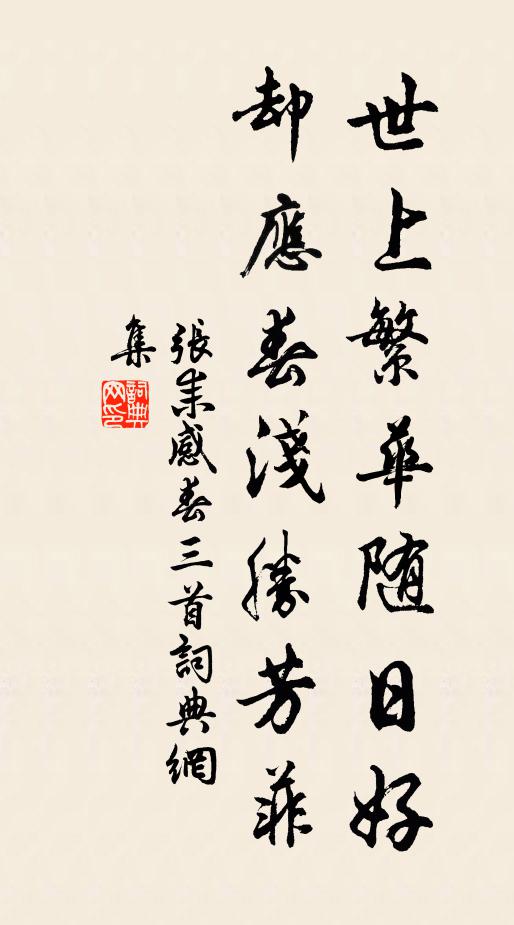 世上繁華随日好
却應春淺勝芳菲
張耒感春三首詞典網
集
詞典
网印